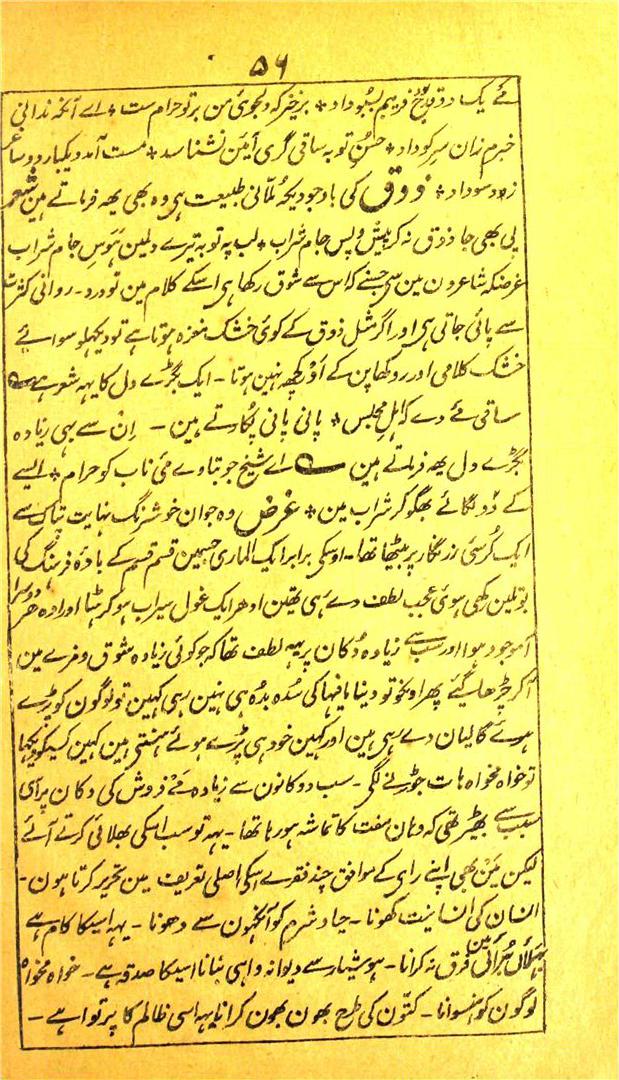 ۵۶
مے یک دو قدح فریبم بسبو داد ٭ برخیز کہ دلجوئی من بر تو حرام ست ٭ اے آنکہ ندانی
خبرم زان سر کو داد ٭ حسن تو بہ ساقی گری آئین نشناسد ٭ مست آمد و یکبار دو ساغر
ز دو سو داد ٭ ذوق کی باوجودیکہ ملّانی طبیعت ہی وہ بھی یھہ فرماتے ہین شعر
پی بھی جا ذوق نہ کر پیش و پس جام شراب ٭ لب پہ توبہ تیرے دلمین ہوس جام شراب
غرضکہ شاعرون مین سی جسنے کہ اس سے شوق رکھا ہی اسکے کلام مین تو درد ۔ روانی کثرت
سے پائی جاتی ہی اور اگر مثل ذوق کے کوئی خشک مغزہ ہوتا ہے تو دیکھلو سوائے
خشک کلامی اور روکھاپن کے اور کچھہ نہین ہوتا ۔ ایک بگڑے دل کا یہہ شعر ہے
ساقی مے دے کہ اہل مجلس ٭ پانی پانی پکارتے ہین ۔ اِن سے بہی زیادہ
بگڑے دل یھہ فرماتے ہین اے شیخ جو بتاوے مئی ناب کو حرام ٭ ایسے
کے دو لگائے بھگو کر شراب مین ٭ غرض وہ جوان خوشرنگ نہایت تپاک سے
ایک کرسئی زرنگار پر بیٹھا تھا ۔ اوسکی برابر ایک الماری جسمین قسم قسم کے بادۂ فرنگ کی
بوتلین رکھی ہوئی عجب لطف دے رہی تھین اودھر ایک غول سیراب ہو کر ہٹا اور ادھر دوسرا
آموجود ہوا اور سب سے زیادہ دکان پر یہہ لطف تھا کہ جو کوئی زیادہ شوق و مزے مین
آکر چڑھا گئے پھر اونکو تو دنیا یا فیہا کی سدہ بدہ ہی نہین رہی کہین تو لوگون کو پڑے
ہوئے گالیان دے رہی ہین اور کہین خود ہی پڑے ہوئے ہنستی ہین کہین کسیکو دیکھا
تو خواہ مخواہ ہات جوڑنے لگی ۔ سب دوکانون سے زیادہ مے فروش کی دکان پر اسی
سبب سے بھیڑ تھی کہ وہان مفت کا تماشہ ہو رہا تھا ۔ یہہ تو سب اسکی بھلائی کرتے آئے
لیکن مین بھی اپنے رای کے موافق چند فقرے اسکی اصلی تعریف مین تحریر کرتا ہون ۔
انسان کی انسانیت کھونا ۔ چادر شرم کو آنکھون سے دھونا ۔ یہہ اسیکا کام ہے
بھلائی برائی مین فرق نہ کرانا ۔ ہوشیار سے دیوانہ واہی بنانا اسیکا صدقہ ہے ۔ خواہ مخواہ
لوگون کو ہنسوانا ۔ کتّون کی طرح بھون بھون کرانا یہہ اسی ظالم کا پرتوا ہے ۔